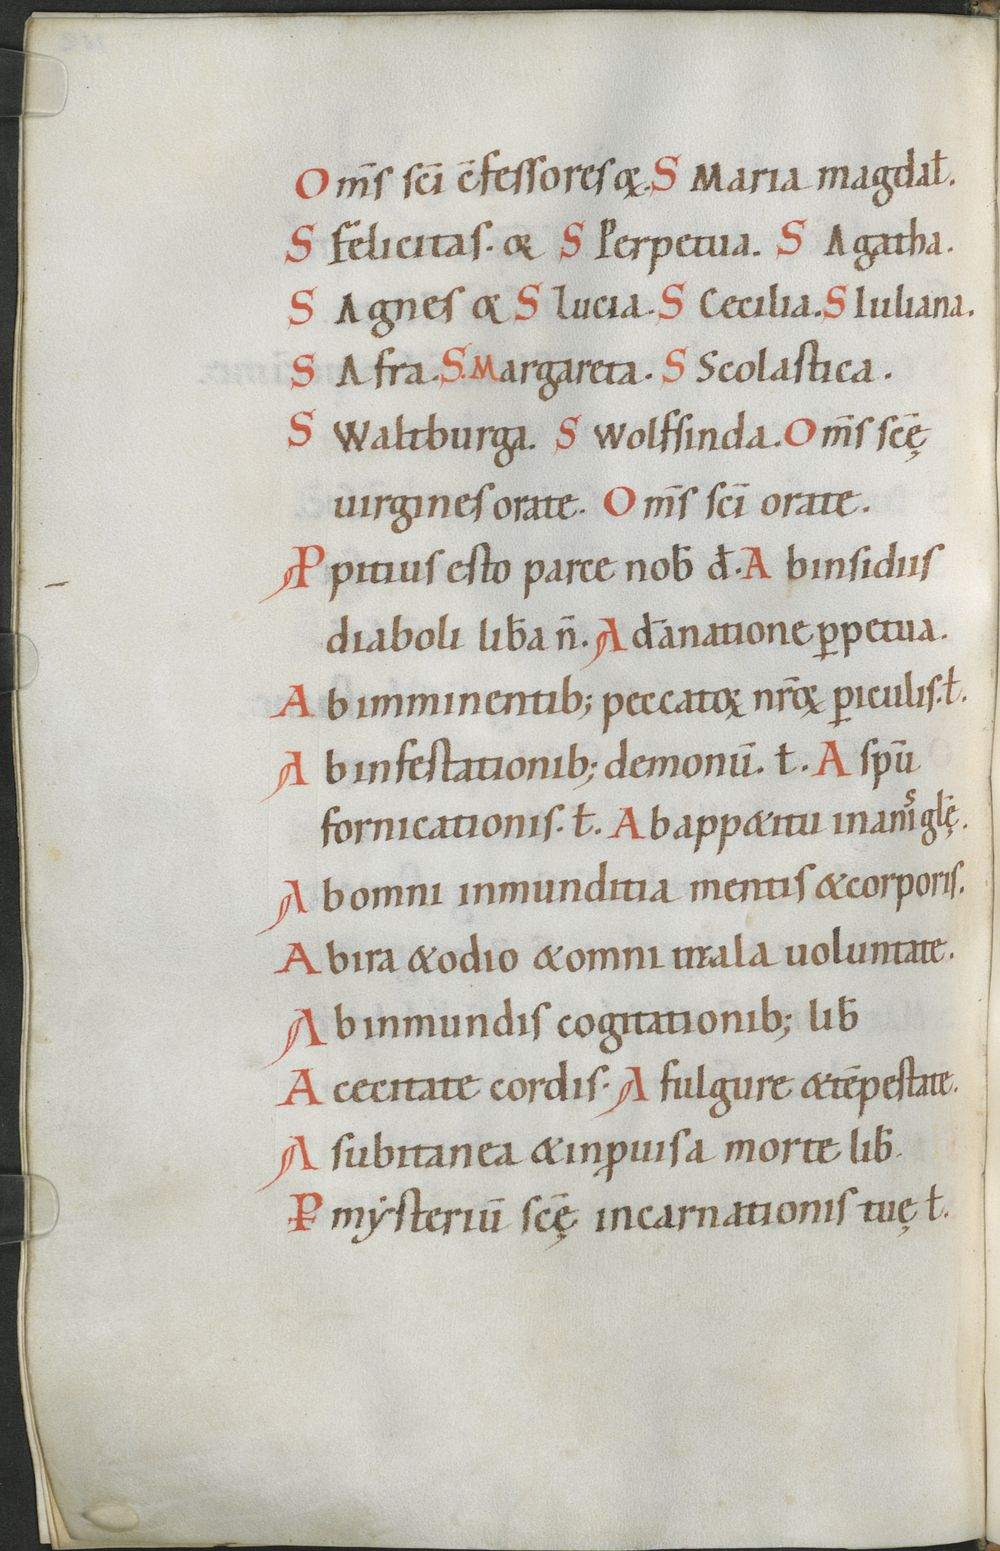 Om̄s sc̄i c̄fessores oꝝ. S Maria magdaƚ.
S felicitas. & S Perpetua. S Agatha.
S Agnes & S lucia. S Cecilia. S Iuliana.
S Afra. S. Margareta. S Scolastica.
S Waltburga. S Wolfsinda. Om̄s sc̄ę
uirgines orate. Om̄s sc̄i orate.
Ppitius esto parce nob̄ d̄. A binsidiis
diaboli lib̄a n̄. A dānatione ꝑpetua.
Ab imminentib; peccatoꝝ nr̄oꝝ ꝑiculis. ƚ.
Ab infestationib; demonū. ƚ. A spū
fornicationis. ƚ. Ab app&itu inanis gƚę.
Ab omni inmunditia mentis & corporis.
Ab ira & odio & omni mala uoluntate.
Ab inmundis cogitationib; lib̄
A cecitate cordis. A fulgure & tēpestate.
A subitanea & inꝓuisa morte lib̄.
Ꝑ mẏsteriū sc̄ę incarnationis tuę ƚ.